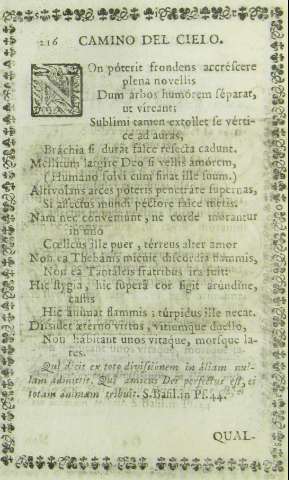 216 CAMINO DEL CIELO.
NOn póterit frondens accréscere
plena novellis
Dum arbos humórem séparat,
ut vireant;
Sublimi tamen extollet se vérti-
ce ad auras,
Bráchia si durâ falce resecta cadunt.
Mellitum largire Deo si vellis amórem,
(Humáno solvi cum sinat ille suum.)
Altívolans arces póteris penetráre supernas,
Si affectus mundi péctore falce metis.
Nam nec convéniunt, ne corde morantur
in uno
Cœlicus ille puer, térreus alter amor
Non ea Thebánis micuit discórdia flammis,
Non ea Tantáleis fratribus ira fuit:
Hic stygia, hic superâ cor figit arúndine,
callis
Hic ánimat flammis; túrpidus ille necat.
Díssidet ætérno virtus, vitiúmque duello,
Non hábitant unos vitaque, morsque la-
res.
Qui Deit ex toto divisionem in áliam nul-
lam admittit. Qui amicus Dei perfectus est, ei
totam ánimam tríbuit. S. Basil. in Ps. 44.
QUAL-